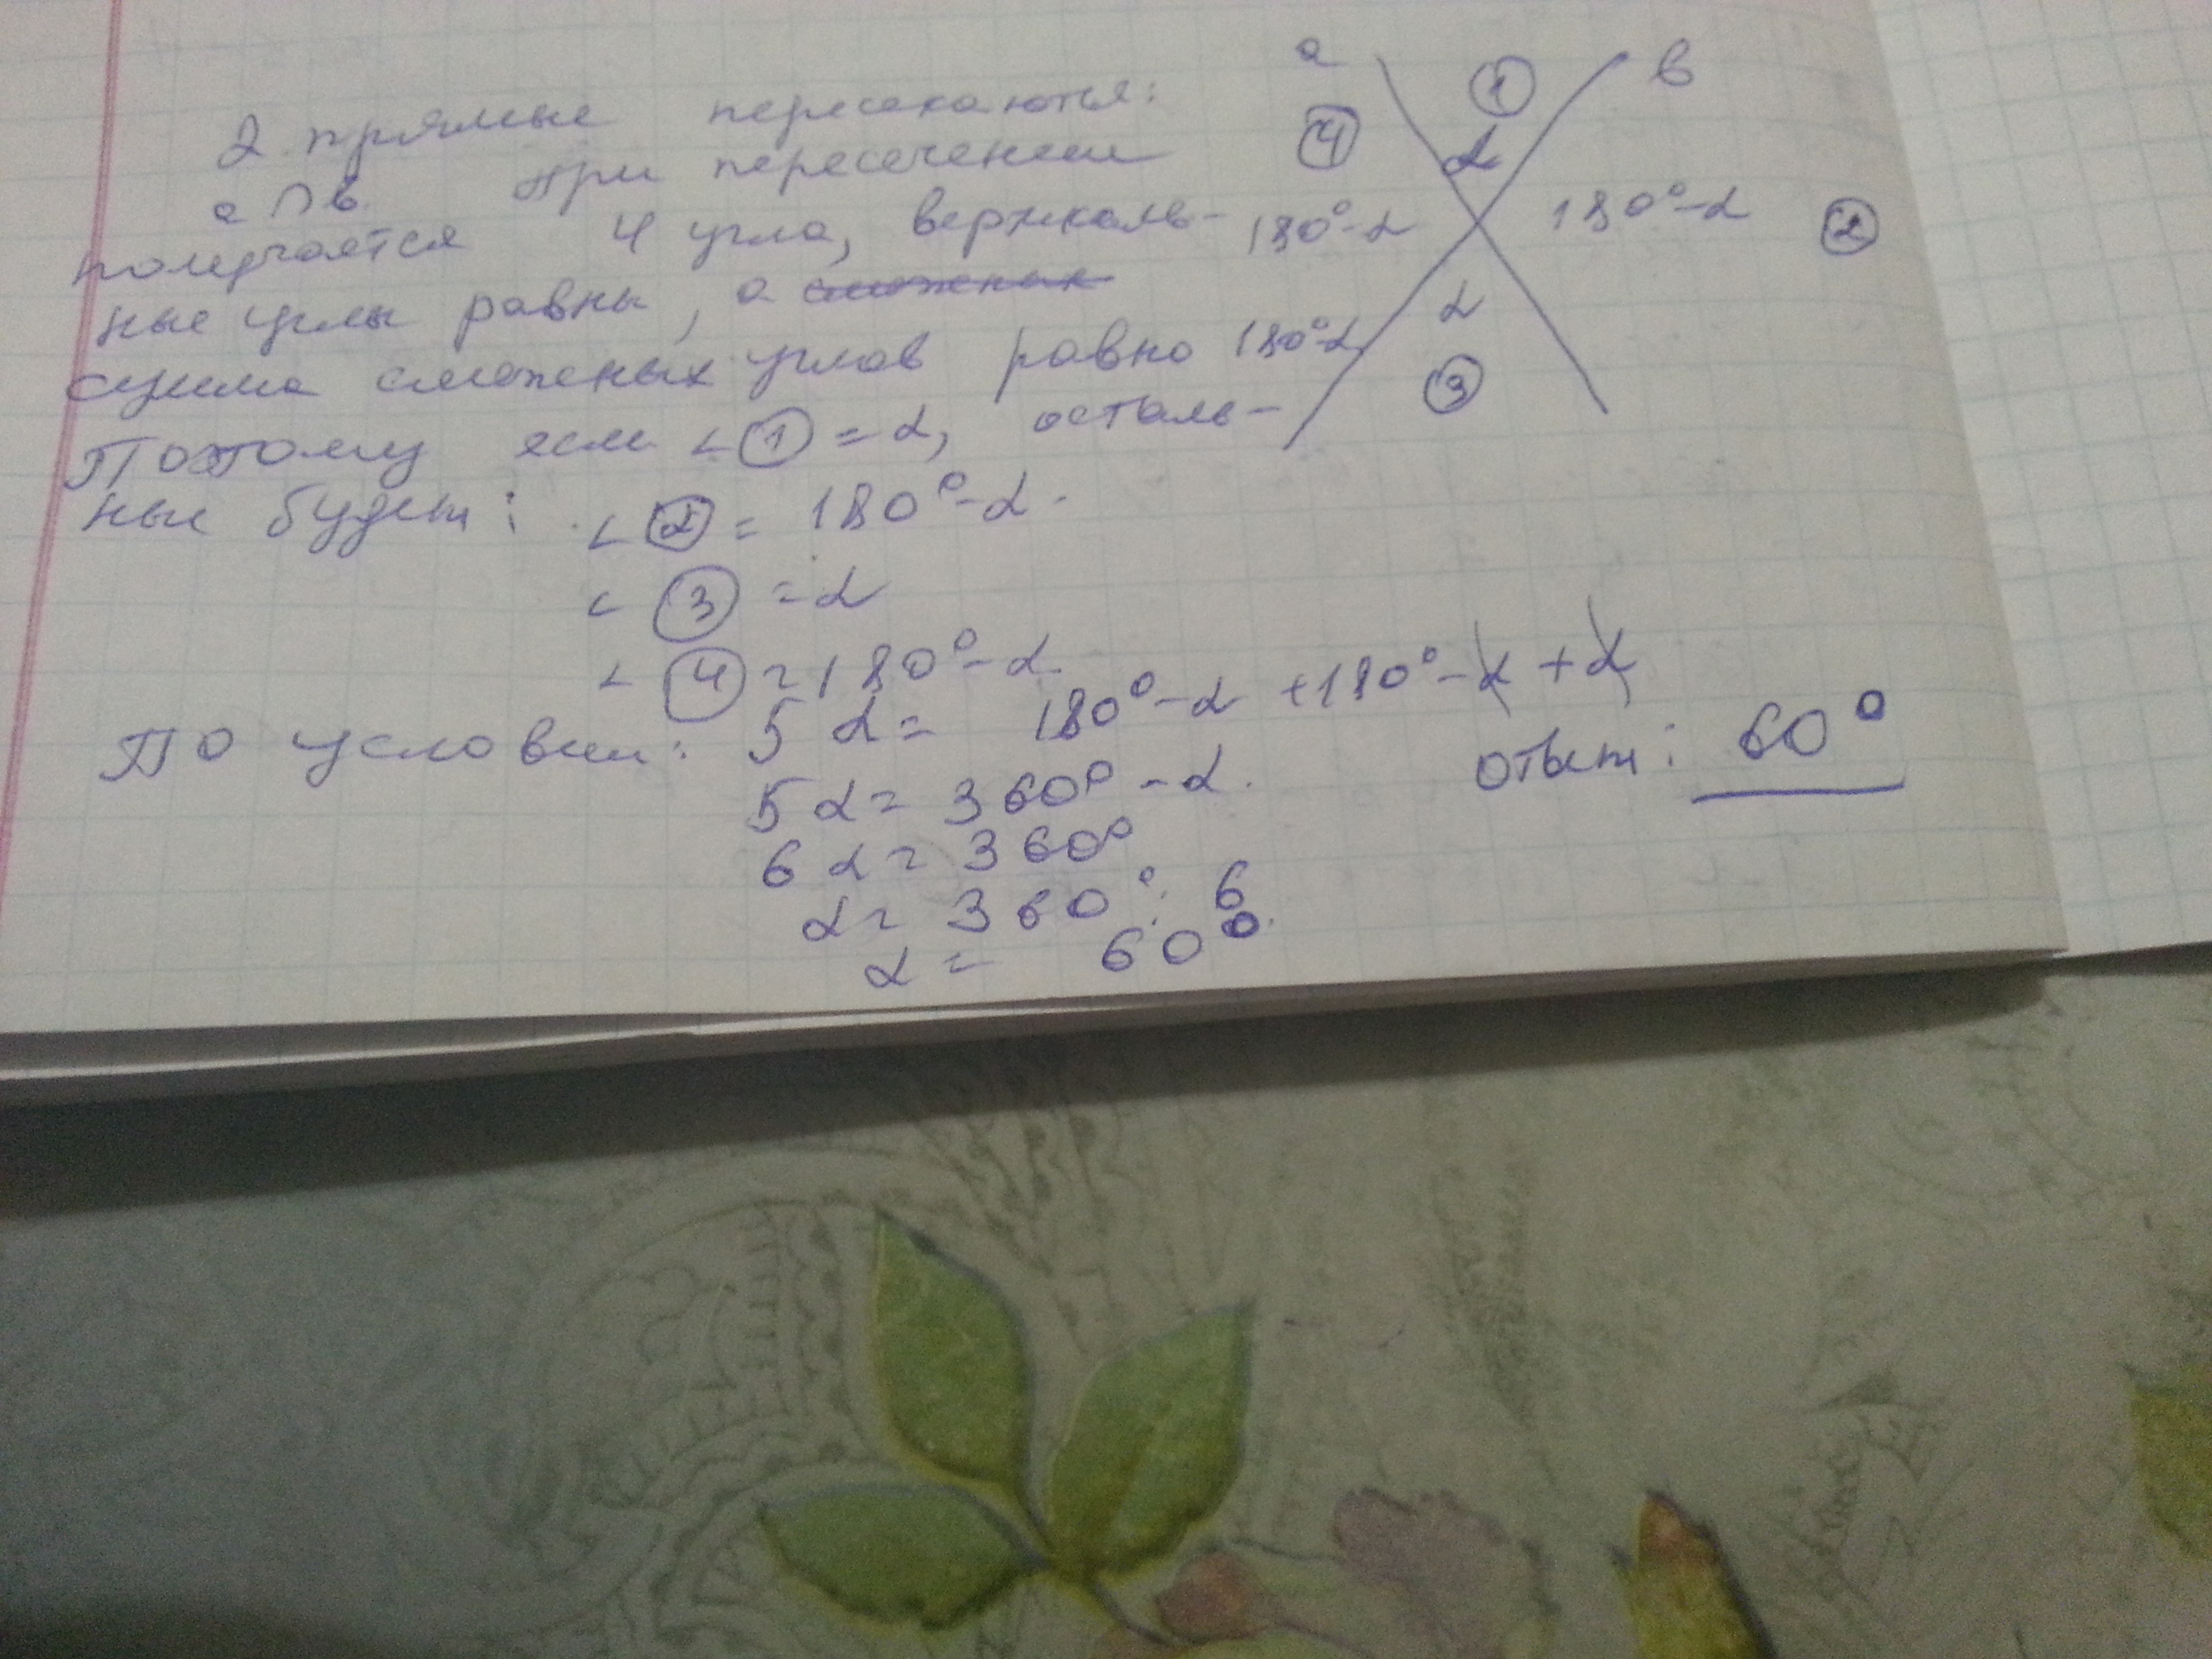 2 прямые пересекаются:
a ∩ в. При пересечении
получается 4 угла, вертикаль-
ные углы равны, а смежных
сумма смежных углов равно 180°-α
Поэтому если ∠ 1 = α, осталь-
ные будет:
∠ 2 = 180°-α.
∠ 3 = α
∠ 4 = 180°-α.
По условии: 5α = 180°-α +180°-α +α
5α = 360°-α.
6α = 360°
α = 360°: 6
α = 60°.
ответ: 60°
a
в
1
4
α
180°-α
180°-α
2
α
3